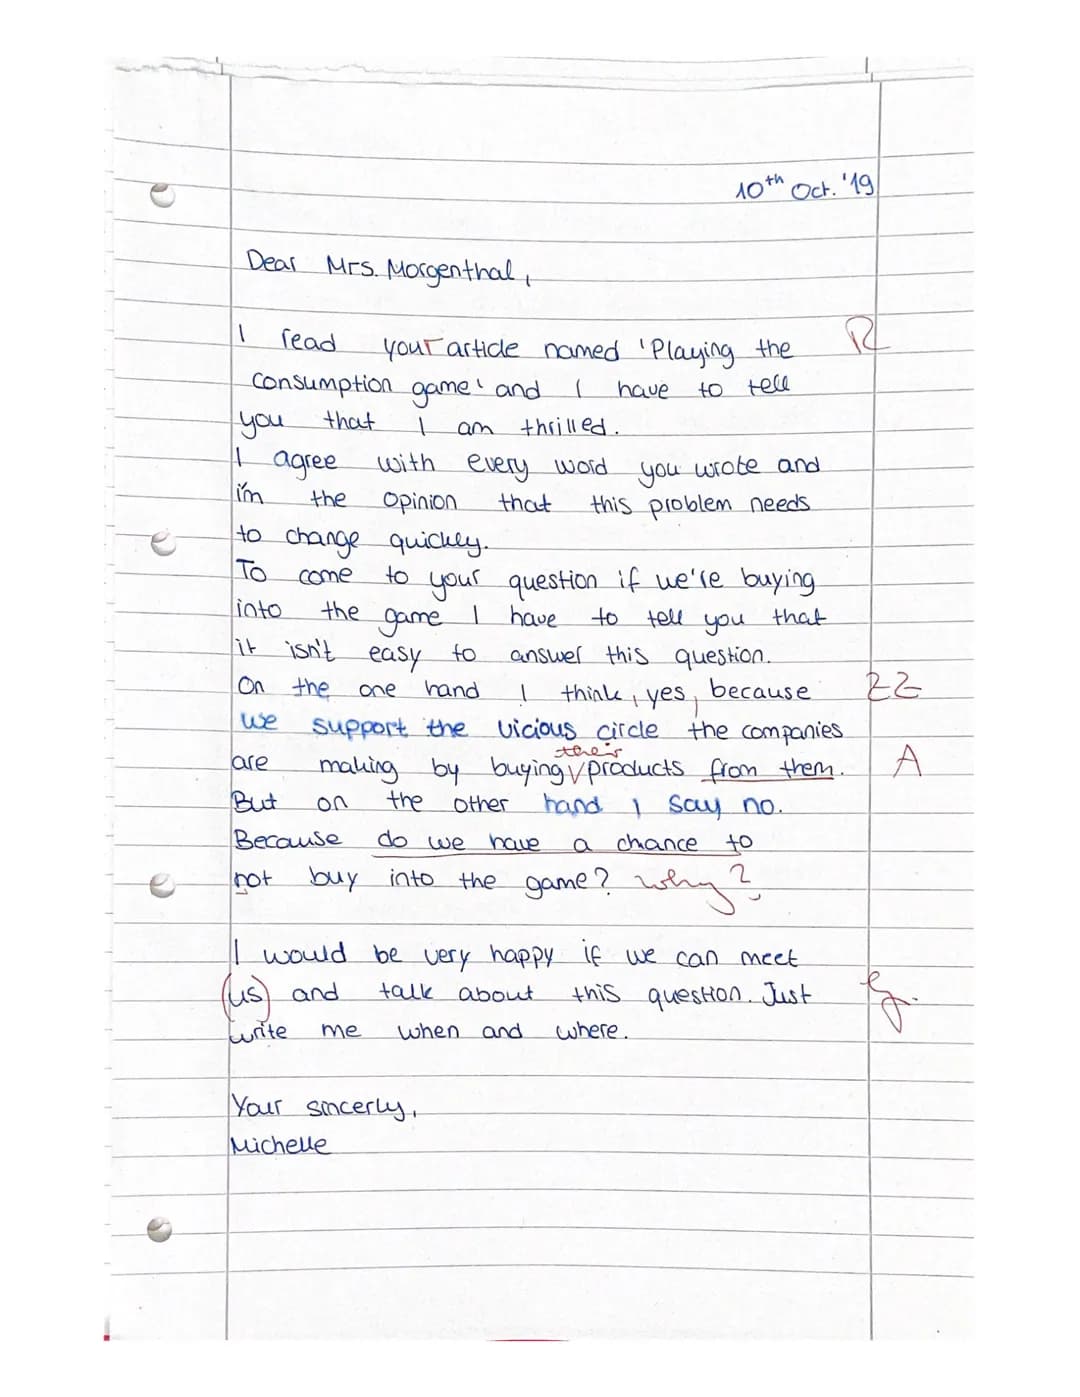 10th Oct. '19
Dear Mrs. Morgenthal,
I read your article named 'Playing the R
consumption game' and I have to tell
you that I am thrilled.
I agree with every word you wrote and
i'm the opinion that this problem needs
to change quickly.
To come to your question if we're buying
into the game I have to tell you that
it isn't easy to answer this question.
On the one hand I think, yes, because
we support the vicious circle the companies
their
are making by buying products from them. A
But on the other hand I say no.
Because do we have a chance to
not buy into the game? why?
I would be very happy if we can meet
(us) and talk about this question. Just
write me when and where.
Your sincerly,
Michelle